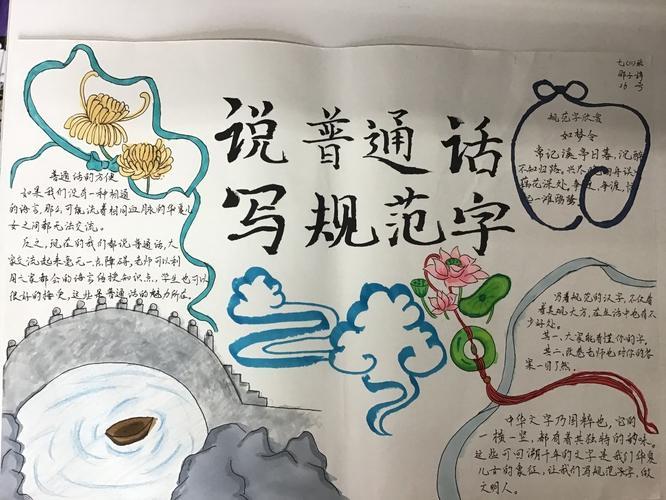 说普通话
写规范字
普通话的方便
如果我们没有一种相通
的语言,那么可能流着相同血脉的华夏儿
女之间都无法交流。
反之,现在的我们都说普通话,大
家交流起来毫无一点障碍,老师可以利
用大家都会的语言传授知识点,学生也可以
很好的接受,这些是普通话的魅力所在。
16号
规范字欣赏
如梦令
常记溪亭日暮,沉醉
不知归路。兴尽
藕花深处。争渡,
一滩鸥鹭
写着规范的汉字,不仅看
着美观大方,在生活中也有不
少好处。
其一、大家能看懂你的字。
其二、改卷老师也对你的答
案一目了然。
中华文字乃国粹也,它的
一横一竖,都有着其独特的韵味。
这些可回溯千年的文字是我们华夏
儿女的象征,让我们写规范汉字,做
文明人。